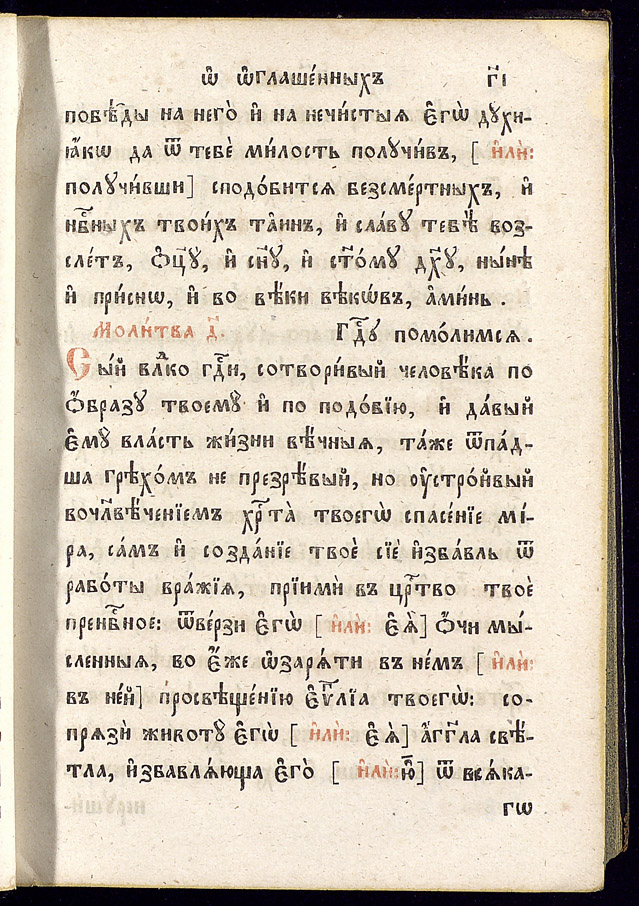 Ѡ҆ ѡ҆глаше́нныхъ г҃і
побѣ́ды на него̀ и҆ на нечи́стыѧ є҆гѡ̀ дꙋ́хи-
ꙗ҆́кѡ да ѿ тебѐ ми́лость полꙋчи́въ, [ и҆лѝ:
полꙋчи́вши] сподо́битсѧ безсме́ртныхъ, и҆
нбⷭ҇ныхъ твои́хъ та̑инъ, и҆ сла́вꙋ тебѣ̀ воз-
сле́тъ, ѻ҆ц҃ꙋ̀, и҆ сн҃ꙋ, и҆ ст҃о́мꙋ дх҃ꙋ, ны́нѣ
и҆ при́снѡ, и҆ во вѣ́ки вѣкѡ́въ, а҆ми́нь .
Моли́тва д҃. Гдⷭ҇ꙋ помо́лимсѧ .
Сы́й влⷣко гдⷭ҇и, сотвори́вый человѣ́ка по
ѻ҆́бразꙋ твоемꙋ̀ и҆ по подо́бїю, и҆ да́вый
є҆мꙋ̀ вла́сть жи́зни вѣ́чныѧ, та́же ѿпа́д-
ша грѣхо́мъ не презрѣ́вый, но ᲂу҆стро́ивый
вочл҃вѣ́ченїемъ хрⷭ҇та̀ твоегѡ̀ спасе́нїе мі́-
ра, са́мъ и҆ созда́нїе твоѐ сїѐ и҆зба́вль ѿ
рабо́ты вра́жїѧ, прїимѝ въ црⷭ҇тво твоѐ
пренбⷭ҇ное: ѿве́рзи є҆гѡ̀ [ и҆лѝ: є҆ѧ̀] ѻ҆́чи мы́-
сленныѧ, во є҆́же ѡ҆зарѧ́ти въ не́мъ [ и҆лѝ:
въ не́й] просвѣще́нїю є҆ѵⷢ҇лїа твоегѡ̀: со-
прѧзѝ животꙋ̀ є҆гѡ̀ [ и҆лѝ: є҆ѧ̀] а҆́гг҃ла свѣ́-
тла, и҆збавлѧ́юща є҆го̀ [ и҆лѝ: ю҆̀] ѿ всѧ́ка-
гѡ